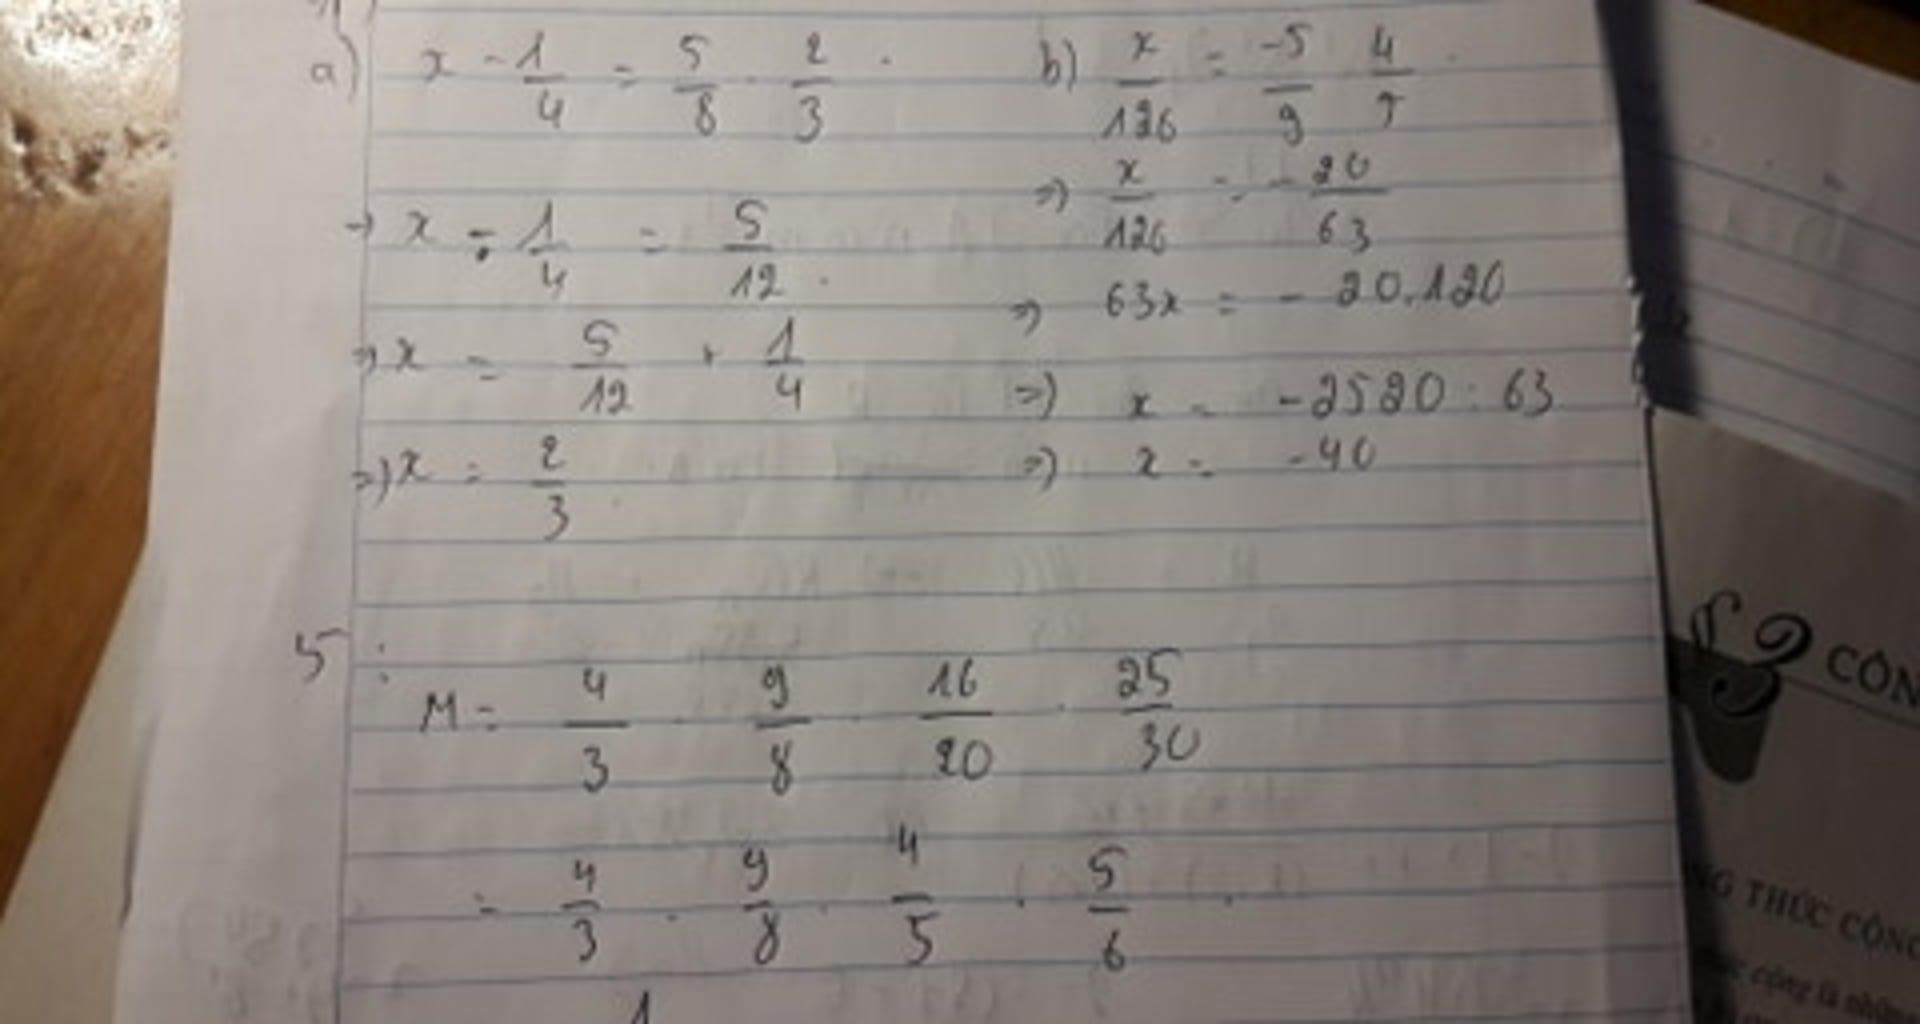 a) x - 1/4 = 5/8 . 2/3 .
-> x - 1/4 = 5/12 .
=> x = 5/12 + 1/4
=> x = 2/3 .
b) x/126 = -5/9 4/7 .
=> x/126 = - 20/63
=> 63x = - 20.120
=> x = -2520 : 63
=> x = -40
5 :
M = 4/3 . 9/8 . 16/20 . 25/30
= 4/3 . 9/8 . 4/5 . 5/6 .
1
CÔN
NG THỨC CÔNG
cộng là những